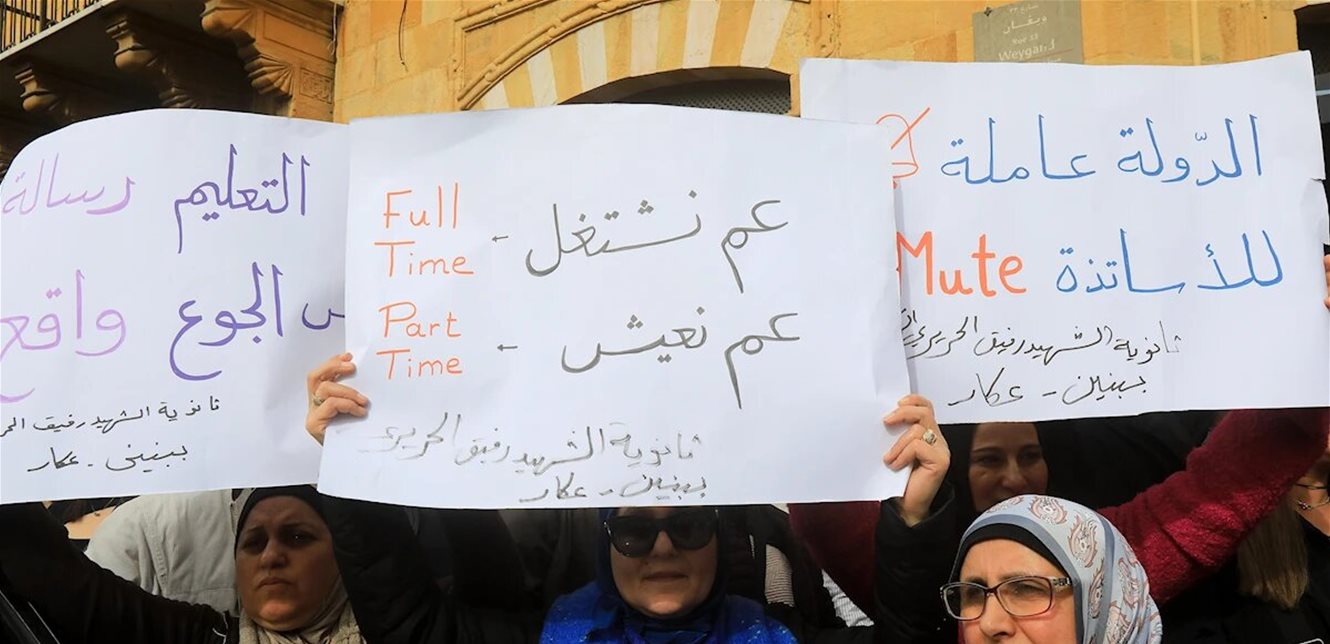 ويغان
Rue 33
Weygand
الدّولة عاملة
للأساتذة Mute
ثانوية الشهيد رفيق الحريري
ببنين - عكار
عم نشتغل ← Full Time
عم نعيش ← Part Time
ثانوية الشهيد رفيق الحريري
ببنين - عكار
التعليم رسالة
الجوع واقع
ثانوية الشهيد رفيق
ببنين - عكار